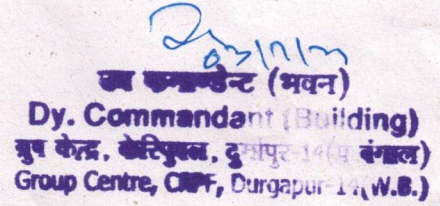 उप कमाण्डेन्ट (भवन)
Dy. Commandant (Building)
ग्रुप केन्द्र, केरिपुबल, दुर्गापुर-14(प बंगाल)
Group Centre, CRPF, Durgapur-14(W.B.)